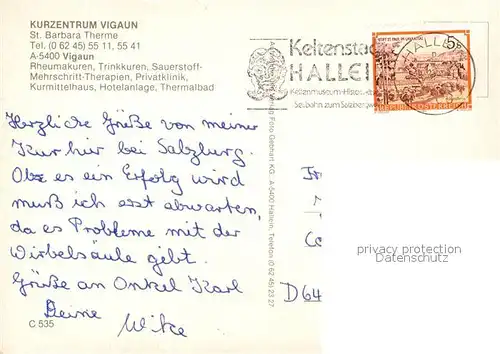 KURZENTRUM VIGAUN
St. Barbara Therme
Tel. (0 62 45) 55 11, 55 41
A-5400 Vigaun
Rheumakuren, Trinkkuren, Sauerstoff-
Mehrschritt-Therapien, Privatklinik,
Kurmittelhaus, Hotelanlage, Thermalbad
Keltenstadt
HALLEIN
Keltenmuseum
Seilbahn zum Salzbergwerk
HALLEIN
5S
Herzliche Grüße von meiner
Kur hier bei Salzburg.
Ob es ein Erfolg wird
muß ich erst abwarten,
da es Probleme mit der
Wirbelsäule gibt.
Grüße an Onkel Karl
Deine
Foto Gebhart KG, A-5400 Hallein, Telefon (0 62 45) 23 27
D64
privacy protection
C 535